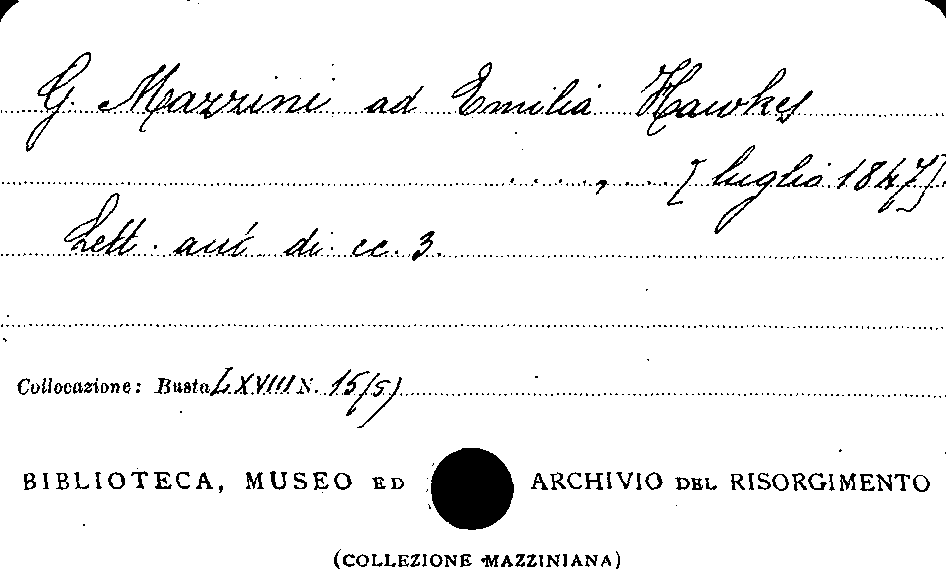 G. Mazzini ad Emilia Hawkes
...., ... [luglio 1847].
Lett. aut. di cc. 3.
Collocazione: Busta LXVIII N. 15(5)
BIBLIOTECA, MUSEO ED ARCHIVIO DEL RISORGIMENTO
(COLLEZIONE MAZZINIANA)